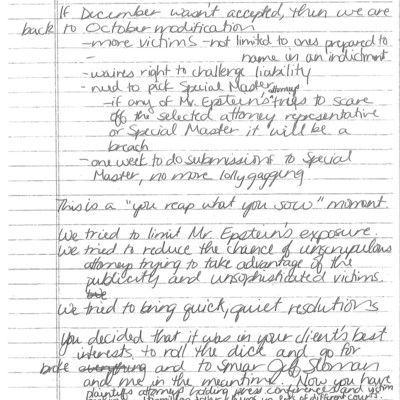 If December wasn't accepted, then we are
back to October modification
- more victims - not limited to ones prepared to
- name in an indictment
- waives right to challenge liability
- need to pick Special Master
- if any of Mr. Epstein's attorneys trys to scare
off the selected attorney representative
or Special Master it will be a
breach
- one week to do submissions to Special
Master, no more lollygagging
This is a "you reap what you sow" moment.
We tried to limit Mr. Epstein's exposure.
We tried to reduce the chance of unscrupulous
attorneys trying to take advantage of the
publicity and unsophisticated victims.
We tried to bring quick, quiet resolutions
You decided that it was in your client's best
interests to roll the dice and go for
broke everything and to smear Jeff Sloman
and me in the meantime. Now you have
plaintiffs attorneys holding press conferences and victim
families in different courts.